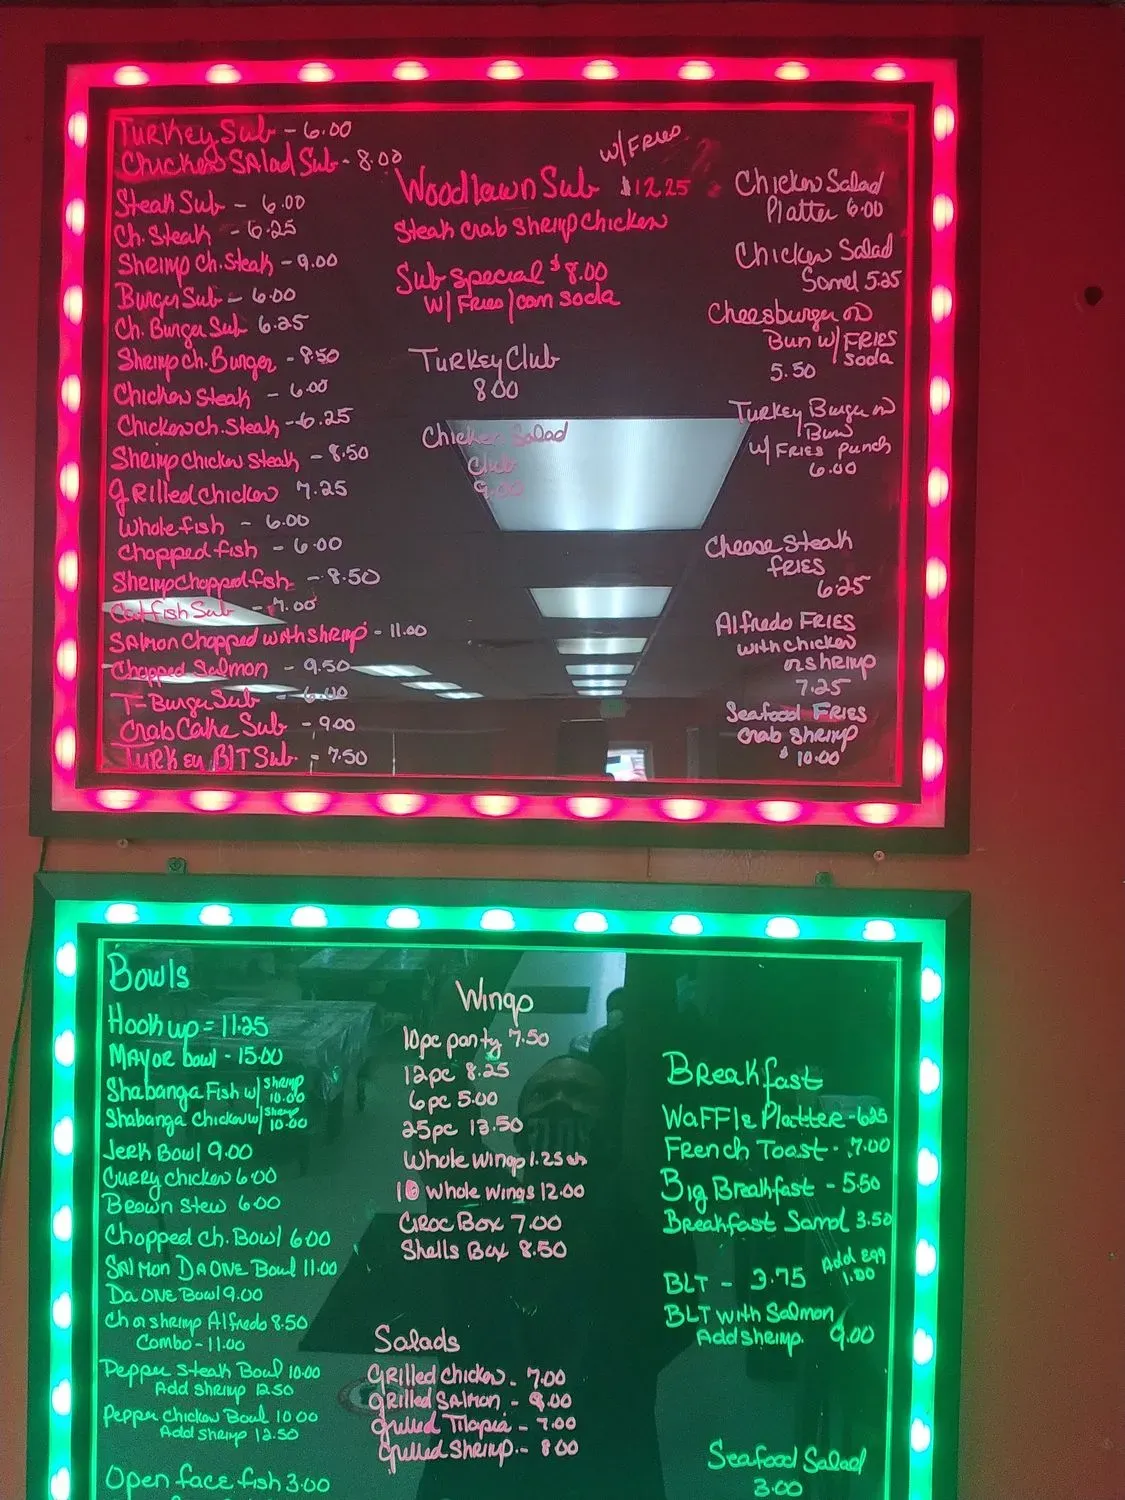 Turkey Sub - 6.00
Chicken Salad Sub - 8.00
Steak Sub - 6.00
Ch. Steak - 6.25
Shrimp Ch. Steak - 9.00
Burger Sub - 6.00
Ch. Burger Sub 6.25
Shrimp Ch. Burger - 8.50
Chicken Steak - 6.00
Chicken Ch. Steak - 6.25
Shrimp Chicken Steak - 8.50
Grilled Chicken 7.25
Whole fish - 6.00
Chopped fish - 6.00
Shrimp Chopped fish - 8.50
Catfish Sub - 7.00
Salmon Chopped with shrimp - 11.00
Chopped Salmon - 9.50
T-Burger Sub - 6.00
Crab Cake Sub - 9.00
Turkey BLT Sub - 7.50
w/ Fries
Woodlawn Sub $12.25
Steak Crab Shrimp Chicken
Sub Special $8.00
w/ Fries / can soda
Turkey Club
8.00
Chicken Salad
Club
9.00
Chicken Salad
Platter 6.00
Chicken Salad
Sand 5.25
Cheesburger on
Bun w/ FRIES
soda
5.50
Turkey Burger on
Bun
w/ Fries punch
6.00
Cheese Steak
FRIES
6.25
Alfredo FRIES
with chicken
or shrimp
7.25
Seafood FRIES
Crab Shrimp
$10.00
Bowls
Hook up = 11.25
Mayor bowl - 15.00
Shabanga Fish w/ Shrimp 10.00
Shabanga Chicken w/ Shrimp 10.00
Jerk Bowl 9.00
Curry Chicken 6.00
Brown Stew 6.00
Chopped Ch. Bowl 6.00
Salmon Da ONE Bowl 11.00
Da ONE Bowl 9.00
Ch or shrimp Alfredo 8.50
Combo - 11.00
Pepper Steak Bowl 10.00
Add shrimp 12.50
Pepper Chicken Bowl 10.00
Add shrimp 12.50
Open face fish 3.00
Wings
10pc party 7.50
12pc 8.25
6pc 5.00
25pc 13.50
Whole wings 1.25 ea
10 Whole wings 12.00
Croc Box 7.00
Shells Box 8.50
Salads
Grilled Chicken - 7.00
Grilled Salmon - 9.00
Grilled Tilapia - 7.00
Grilled Shrimp - 8.00
Breakfast
Waffle Platter - 6.25
French Toast - 7.00
Big Breakfast - 5.50
Breakfast Sand 3.50
Add egg
1.00
BLT - 3.75
BLT with Salmon
Add shrimp 9.00
Seafood Salad
3.00